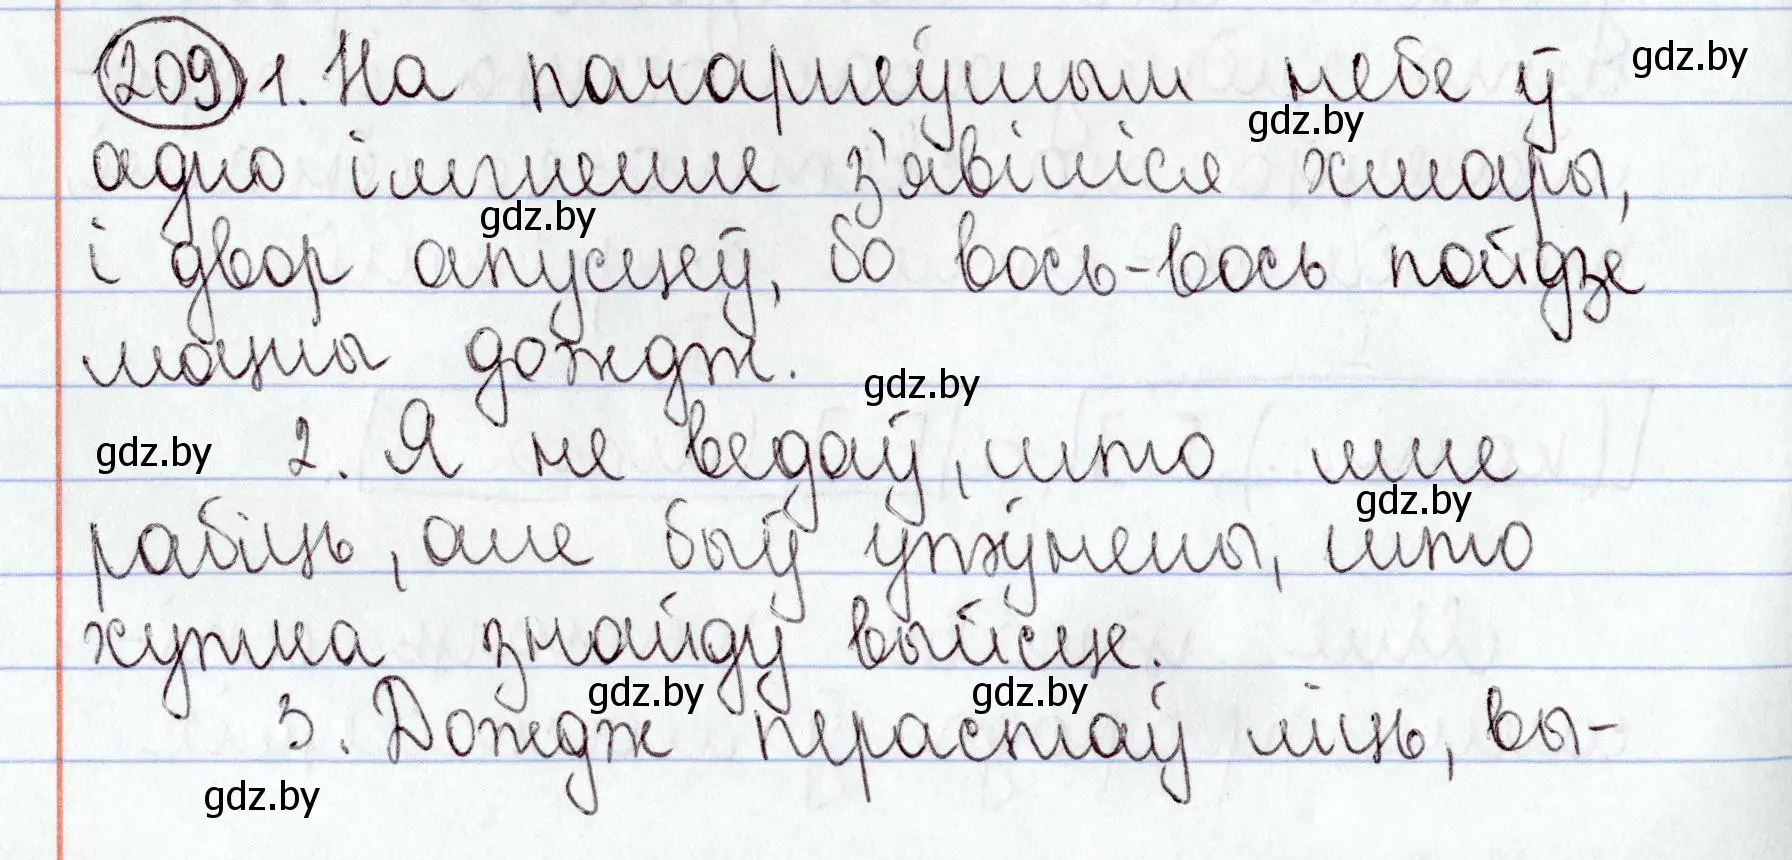 209 1. На пачарнеўшым небе ў
gdz.by
gdz.by
адно імгненне з'явіліся хмары,
gdz.by
і двор апусцеў, бо вось-вось пойдзе
моцны дождж.
gdz.by
gdz.by
2. Я не ведаў, што мне
gdz.by
рабіць, але быў упэўнены, што
хутка знайду выйсце.
gdz.by
gdz.by
3. Дождж перастаў ліць, вы-
gdz.by